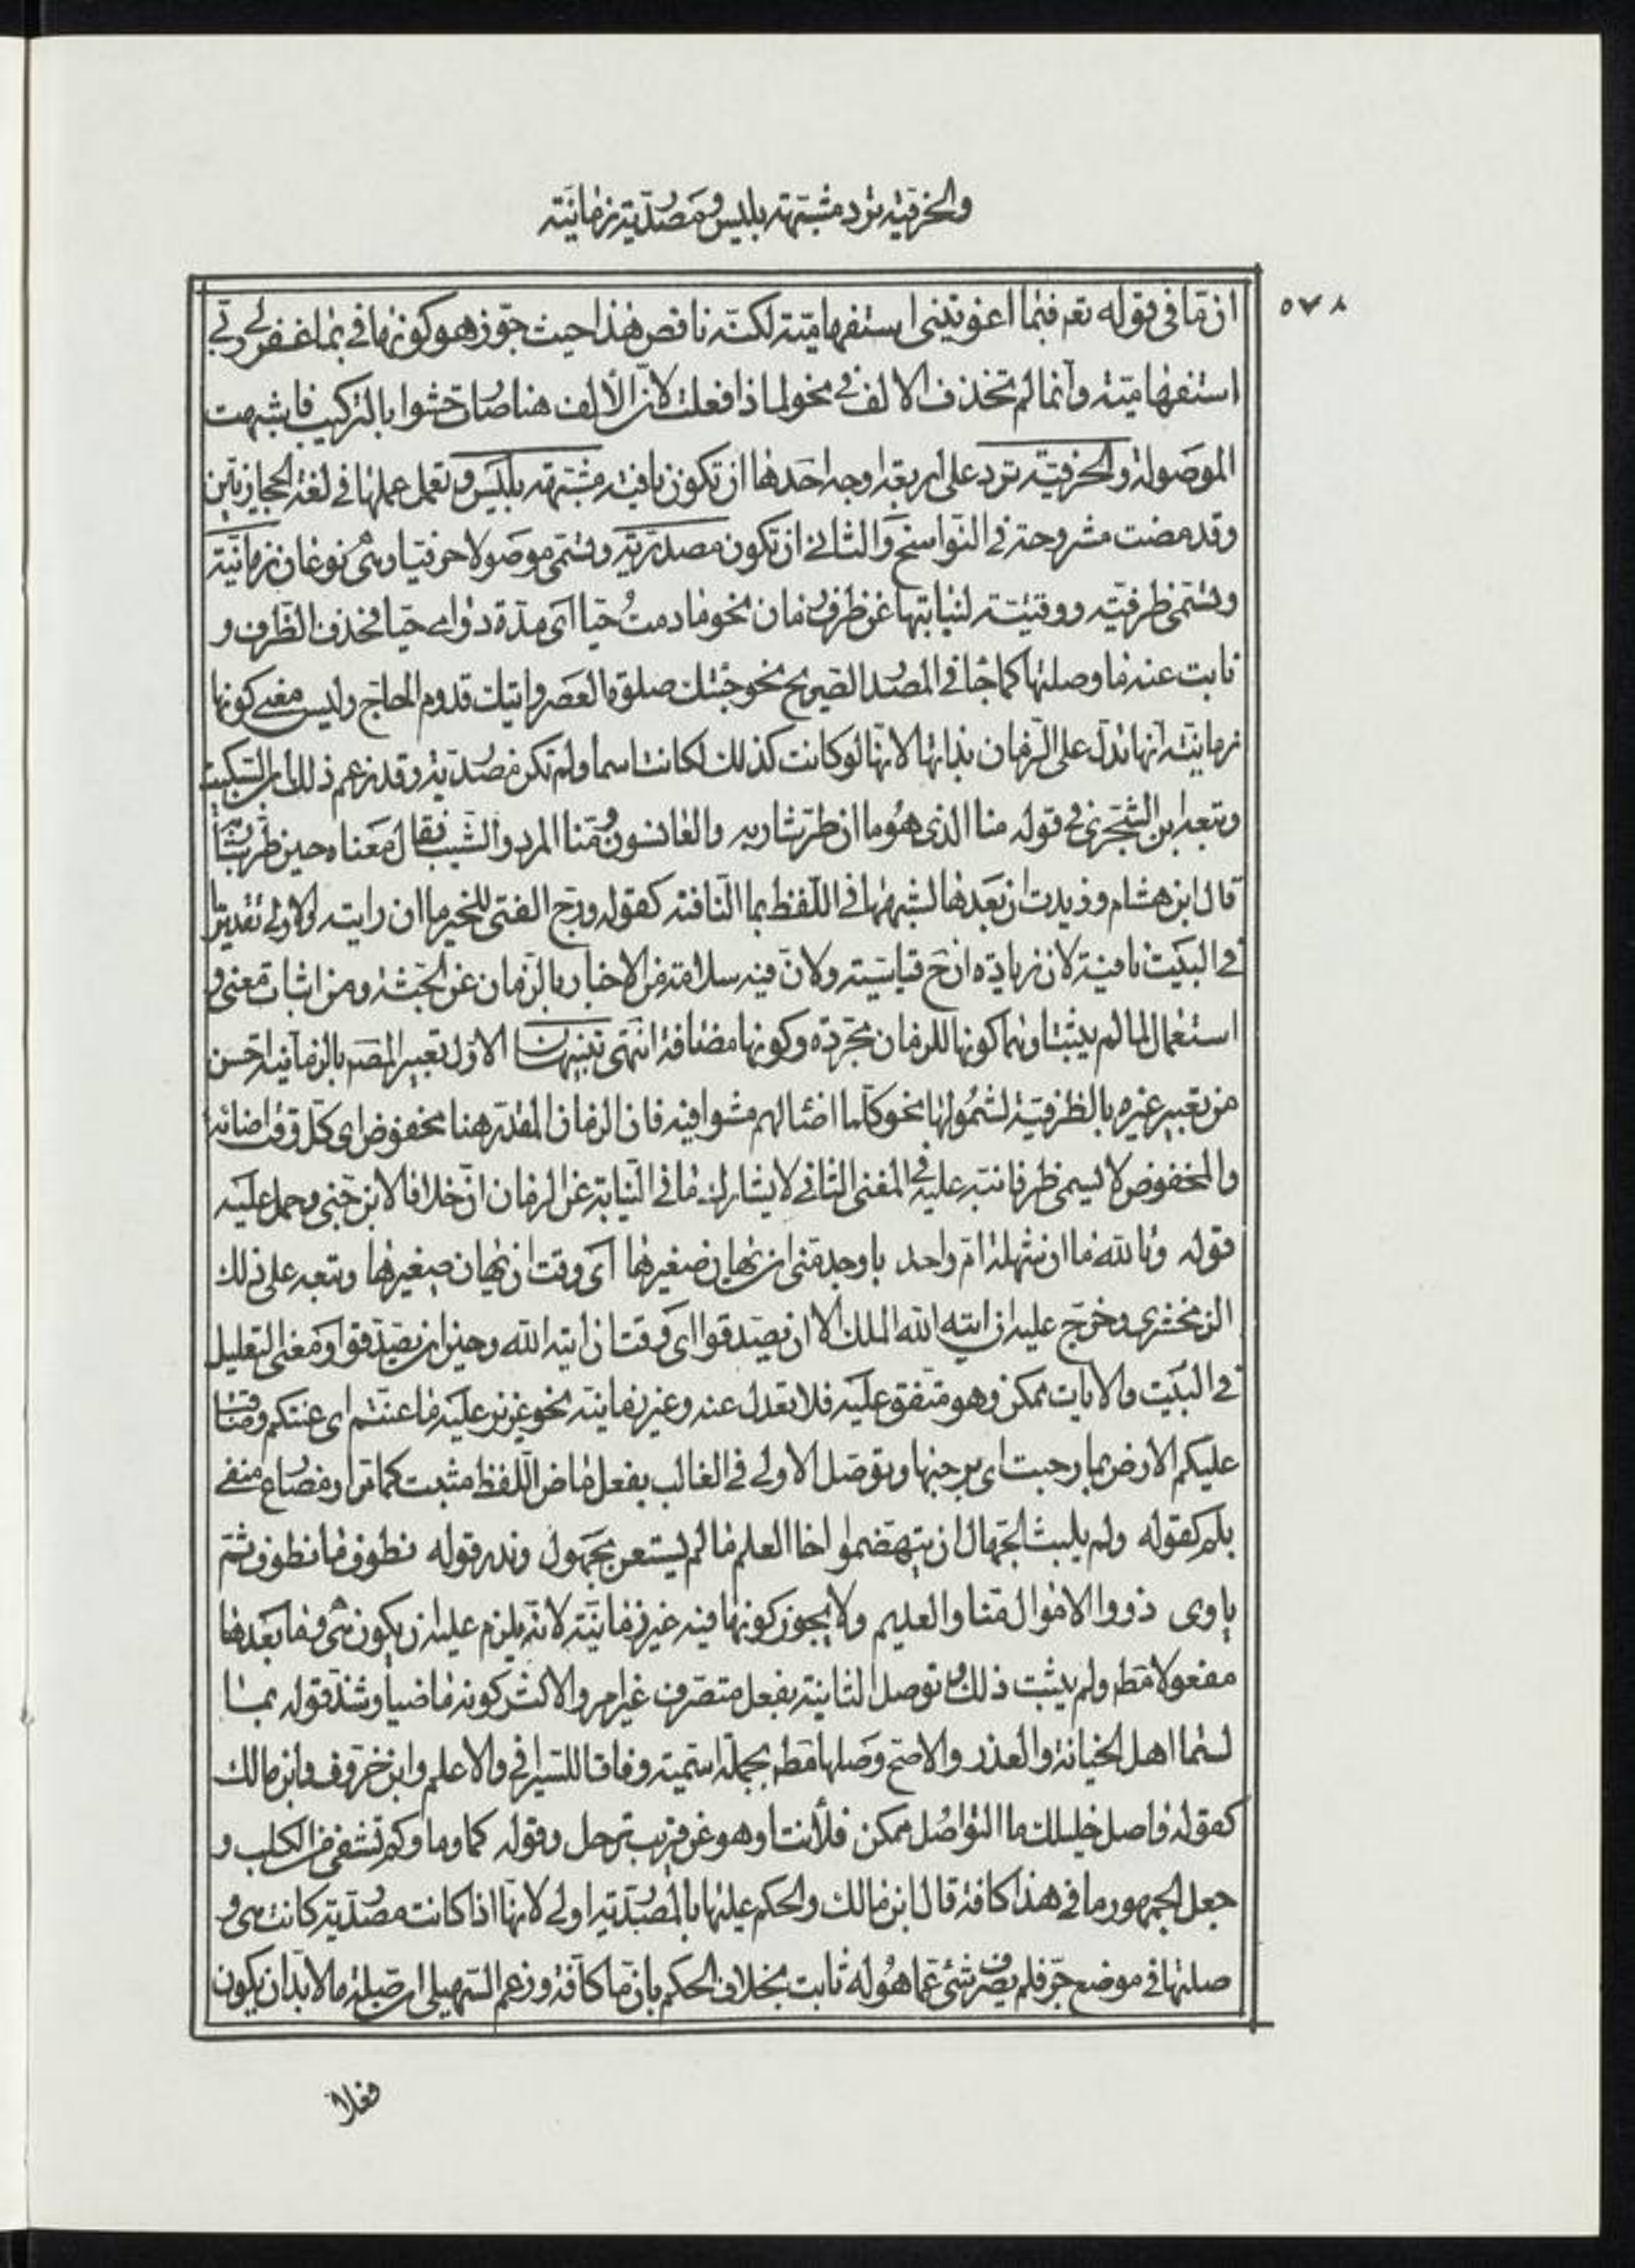 والحرفية ترد مشبهة بليس ومصدرية زمانية
٥٧٨
ان ما في قوله تعم فبما اغويتني استفهامية لكنه ناقض هذا حيث جوز هو كونها في بما غفر لي ربي
استفهامية وانما لم تحذف الالف في نحو لماذا فعلت لان الالف هنا صارت حشوا بالتركيب فاشبهت
الموصولة والحرفية ترد على اربعة اوجه احدها ان تكون نافية مشبهة بليس وتعمل عملها في لغة الحجازيين
وقد مضت مشروحة في النواسخ والثاني ان تكون مصدرية وتسمى موصولا حرفيا وهي نوعان زمانية
وتسمى ظرفية ووقتية لنيابتها عن ظرف زمان نحو ما دمت حيا اي مدة دوامي حيا فحذف الظرف و
نابت عنه ما وصلتها كما جا في المصدر الصريح نحو جئتك صلوة العصر واتيك قدوم الحاج وليس معنى كونها
زمانية انها تدل على الزمان بذاتها لانها لو كانت كذلك لكانت اسما ولم تكن مصدرية وقد زعم ذلك ابن السكيت
وتبعه ابن الشجري في قوله منا الذي هو ما ان طر شاربه والعانسون ومنا المرد والشيب فقال معناه حين طر شاربه
قال ابن هشام وزيدت ان بعدها لشبهها في اللفظ بما النافية كقوله ورج الفتى للخير ما ان رايته والاولى تقدير ما
في البيت نافية لان زيادة ان ح قياسية ولان فيه سلامة من الاخبار بالزمان عن الجثة ومن اثبات معنى و
استعمال لما لم يثبتا وهما كونها للزمان مجردة وكونها مضافة انتهى تنبيهان الاول تعبير المصه بالزمانية احسن
من تعبير غيره بالظرفية لشمولها نحو كلما اضا لهم مشوا فيه فان الزمان المقدر هنا مخفوض اي كل وقت اضائة
والمخفوض لا يسمى ظرفا نبه عليه في المغني الثاني لا يشارك ما في النيابة عن الزمان ان خلافا لابن جني وحمل عليه
قوله وتالله ما ان شهلة ام واحد باوجد مني ان يهان صغيرها اي وقت ان يهان صغيرها وتبعه على ذلك
الزمخشري وخرج عليه ان اتيه الله الملك الا ان يصدقوا اي وقت ان اتيه الله وحين ان يصدقوا ومعنى التعليل
في البيت والايات ممكن وهو متفق عليه فلا يعدل عنه وغير زمانية نحو عزيز عليه ما عنتم اي عنتكم وضاقت
عليكم الارض بما رحبت اي برحبها وتوصل الاولى في الغالب بفعل ماض اللفظ مثبت كما مر او مضارع منفي
بلم كقوله ولم يلبث الجهال ان يتهضموا اخا العلم ما لم يستعن بجهول وندر قوله نطوف ما نطوف ثم
ياوى ذووا الاموال منا والعديم ولا يجوز كونها فيه غير زمانية لانه يلزم عليه ان يكون هي وما بعدها
مفعولا مطه ولم يثبت ذلك وتوصل الثانية بفعل متصرف غير امر والاكثر كونه ماضيا وشذ قوله بما
لستما اهل الخيانة والغدر والاصح وصلها مطه بجملة اسمية وفاقا للسيرافي والاعلم وابن خروف وابن مالك
كقوله واصل خليلك ما التواصل ممكن فلأنت او هو عن قريب ترحل وقوله كما دماوكم تشفي من الكلب و
جعل الجمهور ما في هذا كافة قال ابن مالك والحكم عليها بالمصدرية اولى لانها اذا كانت مصدرية كانت هي و
صلتها في موضع جر فلم يصرف شئ عما هو له ثابت بخلاف الحكم بان ما كافة وزعم السهيلي ان صلة ما لا بد ان يكون
فعلا